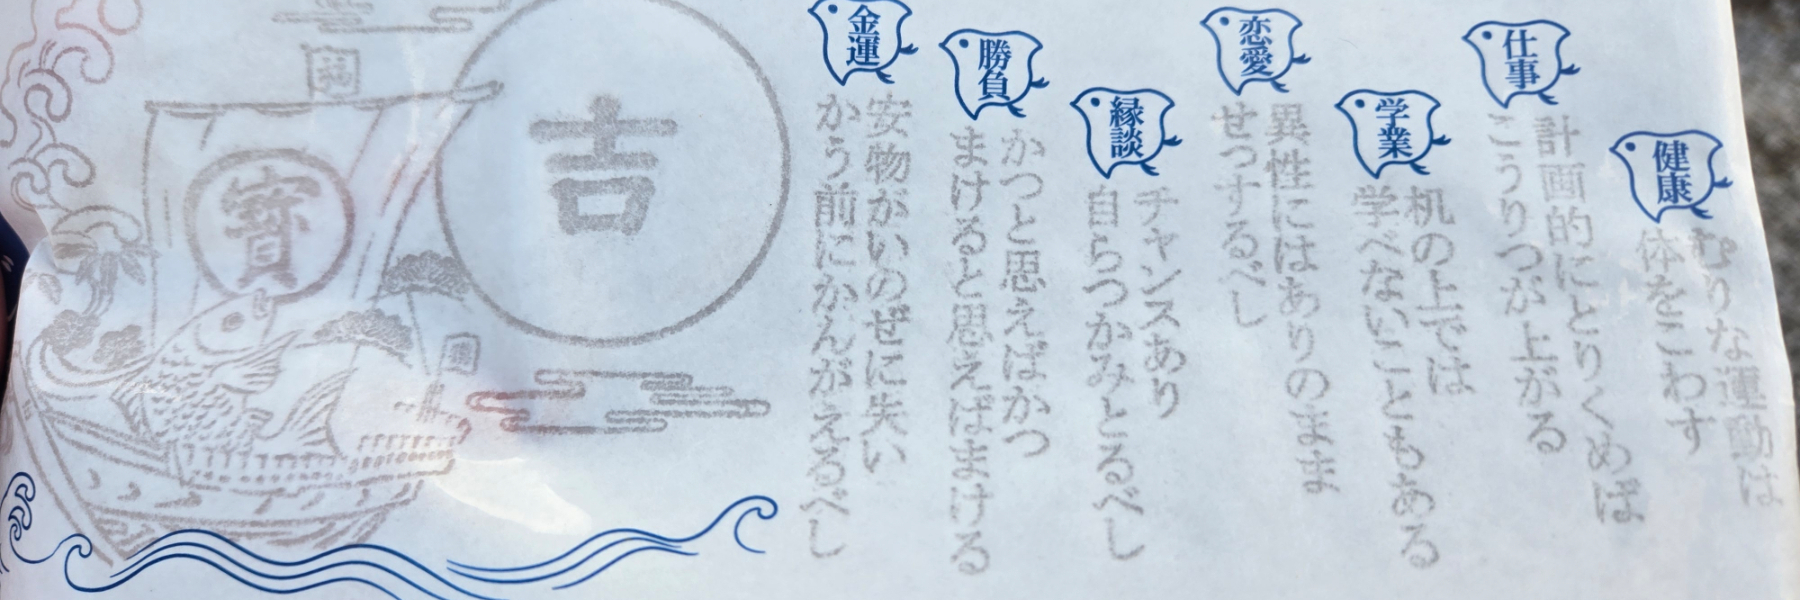 健康
むりな運動は
体をこわす
仕事
計画的にとりくめば
こうりつが上がる
学業
机の上では
学べないこともある
恋愛
異性にはありのまま
せっするべし
縁談
チャンスあり
自らつかみとるべし
勝負
かつと思えばかつ
まけると思えばまける
金運
安物がいのぜに失い
かう前にかんがえるべし
吉
福
寳